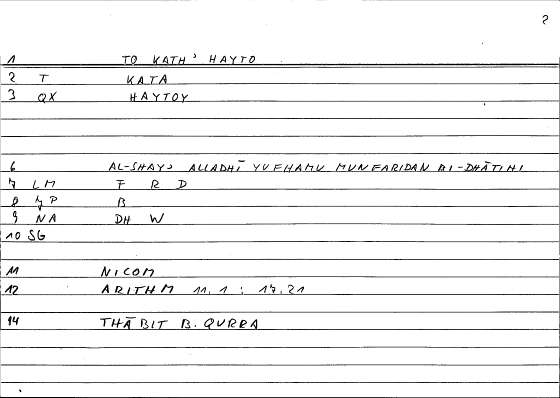 ?
1 TO KATH' HAYTO
2 T KATA
3 QX HAYTOY
6 AL-SHAY' ALLADHĪ YUFHAMU MUNFARIDAN BI-DHĀTIHI
7 LM F R D
8 7P B
9 NA DH W
10 SG
11 NICOM
12 ARITHM 11.1 : 17.21
14 THĀBIT B. QURRA